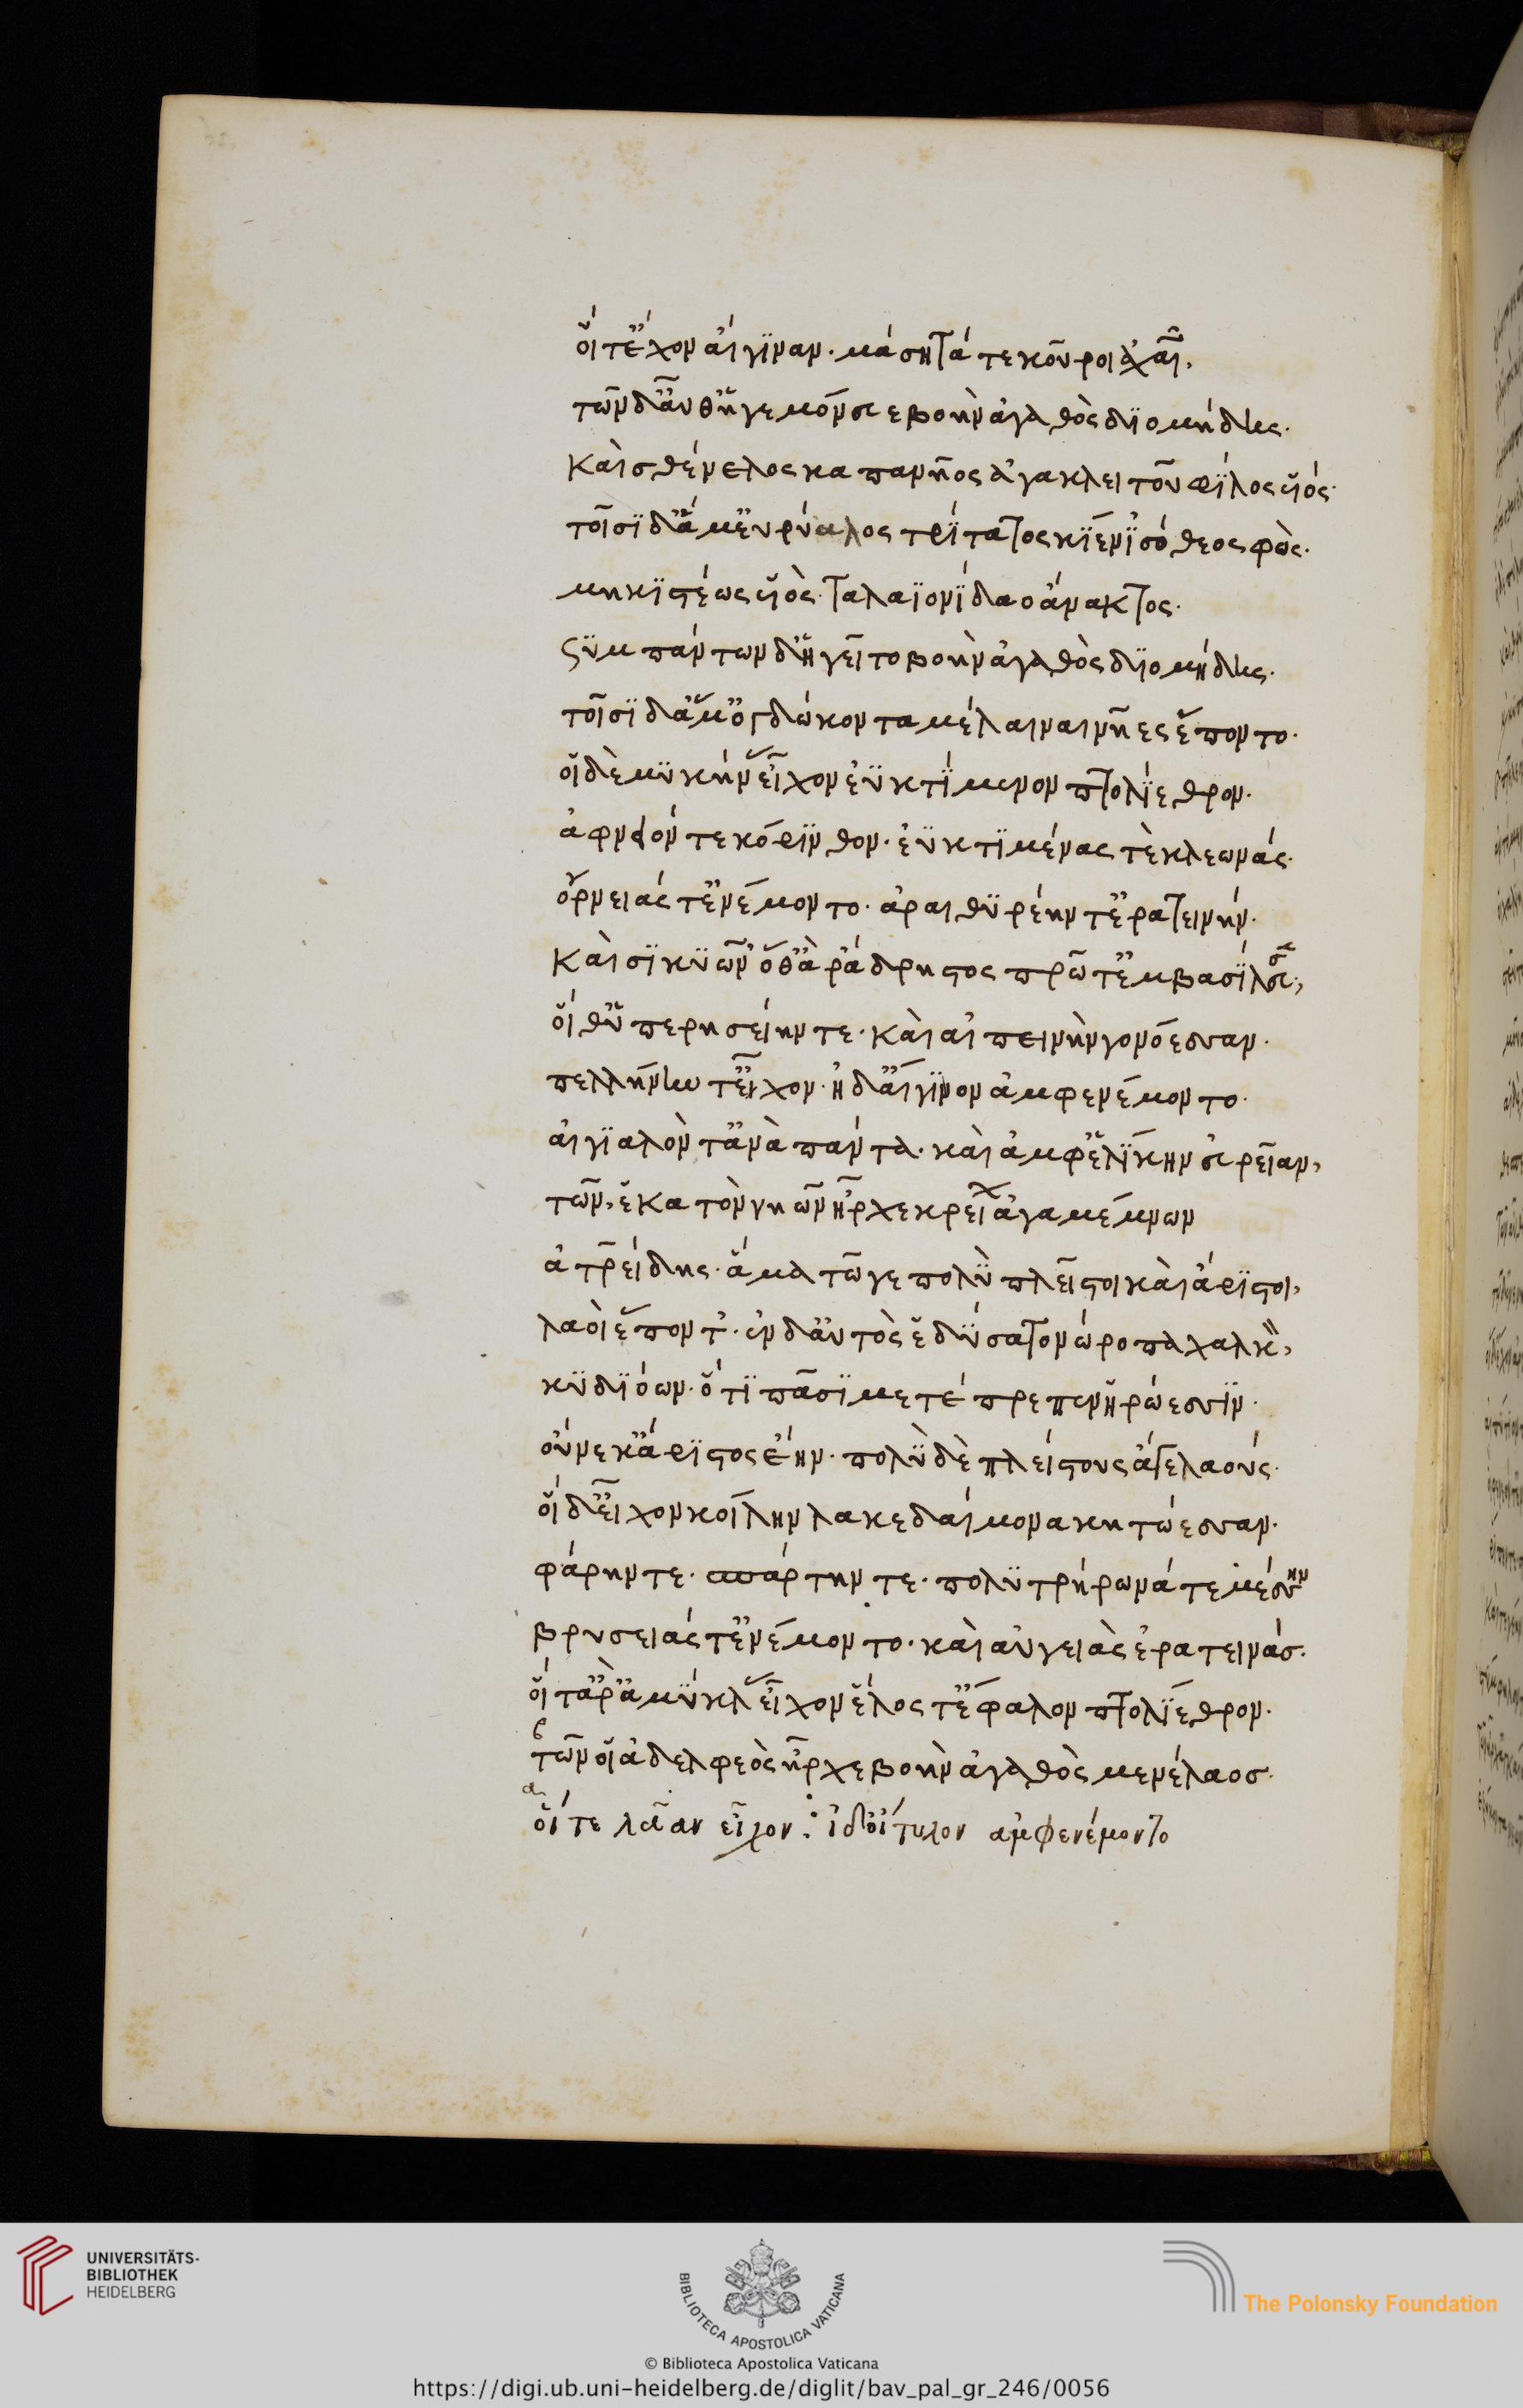 οἵ τ' ἔχον αἴγιναν. μάσητά τε κοῦροι ἀχαιῶν,
τῶν δ' αὖθ' ἡγεμόνευε βοὴν ἀγαθὸς διομήδης.
καὶ σθένελος καπανῆος ἀγακλειτοῦ φίλος υἱός.
τοῖσι δ' ἅμ' εὐρύαλος τρίτατος κίεν ἰσόθεος φώς.
μηκιστέως υἱὸς ταλαϊονίδαο ἄνακτος.
συμπάντων δ' ἡγεῖτο βοὴν ἀγαθὸς διομήδης.
τοῖσι δ' ἅμ' ὀγδώκοντα μέλαιναι νῆες ἕποντο.
οἳ δὲ μυκήνας εἶχον ἐϋκτίμενον πτολίεθρον.
ἀφνειόν τε κόρινθον. ἐϋκτιμένας τὲ κλεωνάς.
ὀρνειάς τ' ἐνέμοντο. ἀραιθυρέην τ' ἐρατεινήν.
καὶ σικυῶν' ὅθ' ἂρ ἄδρηστος πρῶτ' ἐμβασίλευε,
οἵ θ' ὑπερησείην τε. καὶ αἰπεινὴν γονόεσσαν.
πελλήνην τ' εἶχον. ἠδ' αἴγινον ἀμφενέμοντο.
αἰγιαλόν τ' ἀνὰ πάντα. καὶ ἀμφ' ἑλίκην εὐρεῖαν,
τῶν, ἑκατὸν νηῶν ἦρχε κρείων ἀγαμέμνων
ἀτρείδης. ἅμα τῶγε πολὺ πλεῖστοι καὶ ἄριστοι,
λαοὶ ἕποντ'. ἐν δ' αὐτὸς ἐδύσατο νώροπα χαλκὸν,
κυδιόων. ὅτι πᾶσι μετέπρεπεν ἡρώεσσιν.
οὕνεκ' ἄριστος ἔην. πολὺ δὲ πλείστους ἄγε λαούς.
οἳ δ' εἶχον κοίλην λακεδαίμονα κητώεσσαν.
φάρην τε. σπάρτην τε. πολυτρήρωνά τε μέσσην
βρυσειάς τ' ἐνέμοντο. καὶ αὐγειὰς ἐρατεινάσ.
οἵ τ' ἂρ' ἀμύκλας εἶχον ἕλος τ' ἔφαλον πτολίεθρον.
τῶν οἱ ἀδελφεὸς ἦρχε βοὴν ἀγαθὸς μενέλαοσ.
οἵ τε λάαν εἶχον: ἰδ' οἴτυλον ἀμφενέμοντο
UNIVERSITÄTS-
BIBLIOTHEK
HEIDELBERG
BIBLIOTECA APOSTOLICA VATICANA
The Polonsky Foundation
© Biblioteca Apostolica Vaticana
https://digi.ub.uni-heidelberg.de/diglit/bav_pal_gr_246/0056